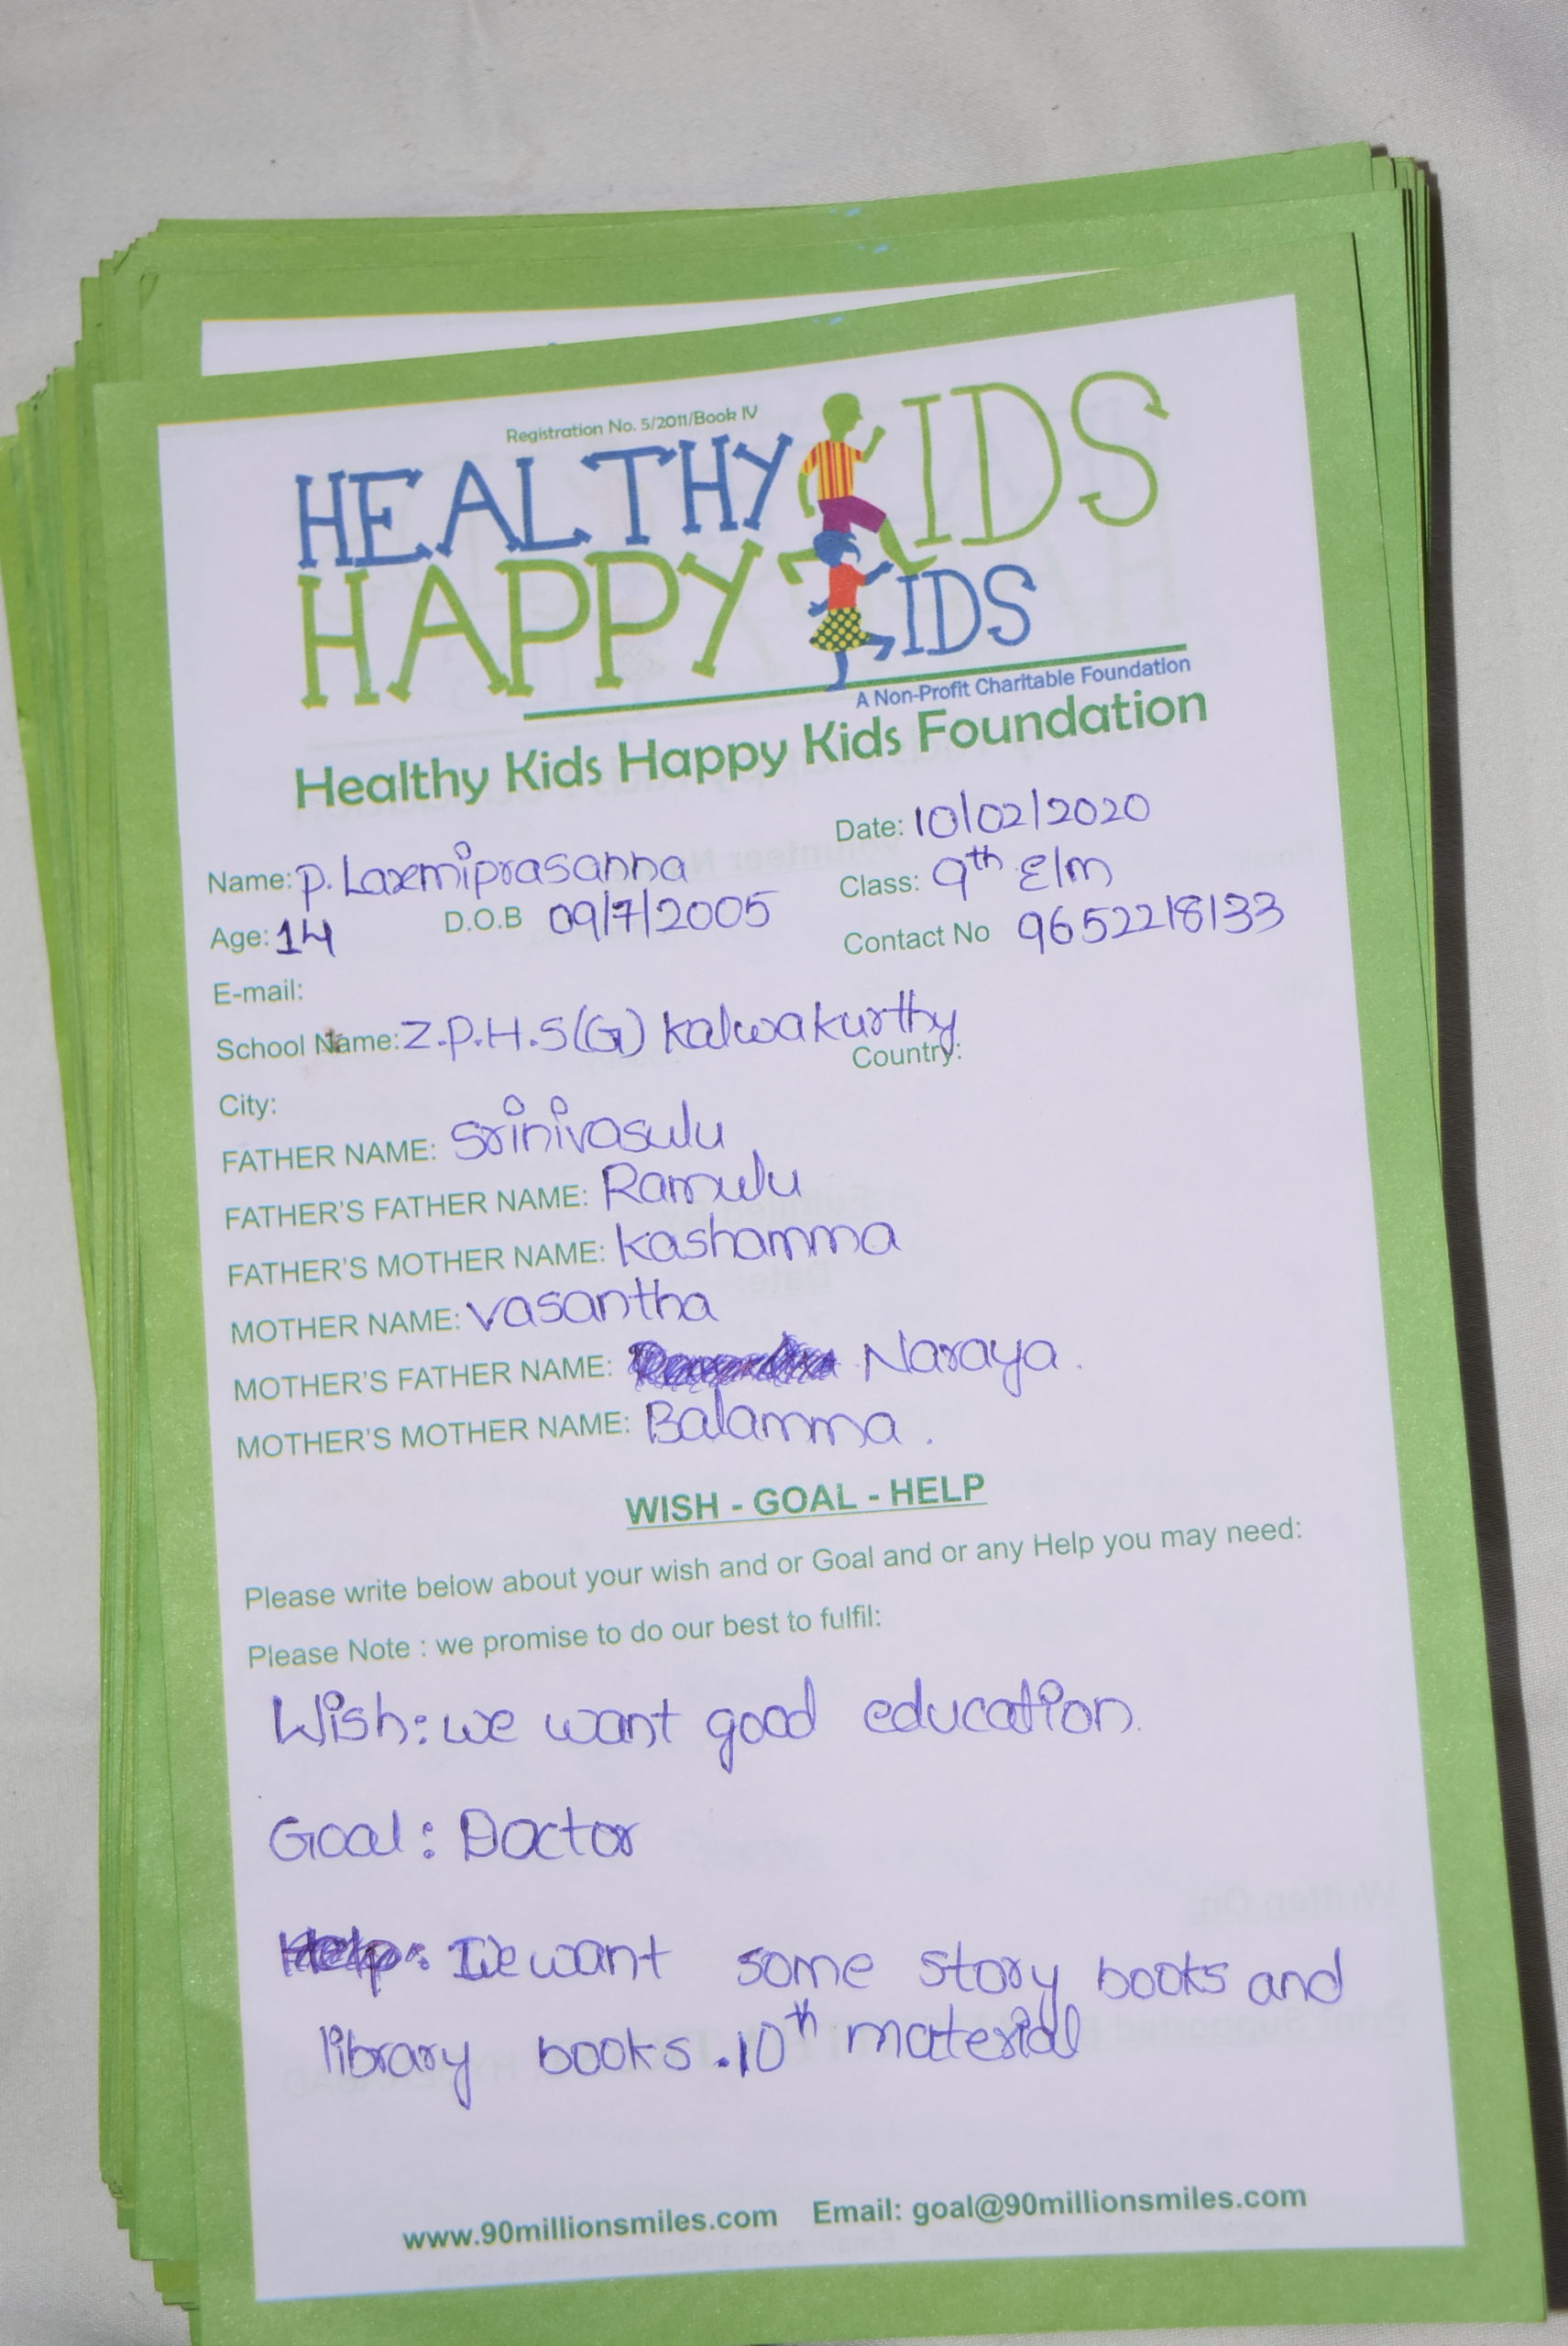 Registration No. 5/2011/Book IV
HEALTHY KIDS
HAPPY KIDS
A Non-Profit Charitable Foundation
Healthy Kids Happy Kids Foundation
Date: 10/02/2020
Name: P. Laxmiprasanna
Class: 9th E/m
Age: 14 D.O.B 09/7/2005
Contact No 9652218133
E-mail:
School Name: Z.P.H.S(G) Kalwakurthy
Country:
City:
FATHER NAME: Srinivasulu
FATHER'S FATHER NAME: Ramulu
FATHER'S MOTHER NAME: Kashamma
MOTHER NAME: Vasantha
MOTHER'S FATHER NAME: Naraya.
MOTHER'S MOTHER NAME: Balamma.
WISH - GOAL - HELP
Please write below about your wish and or Goal and or any Help you may need:
Please Note : we promise to do our best to fulfil:
Wish: we want good education.
Goal: Doctor
Help: We want some story books and
library books. 10th material
www.90millionsmiles.com Email: goal@90millionsmiles.com